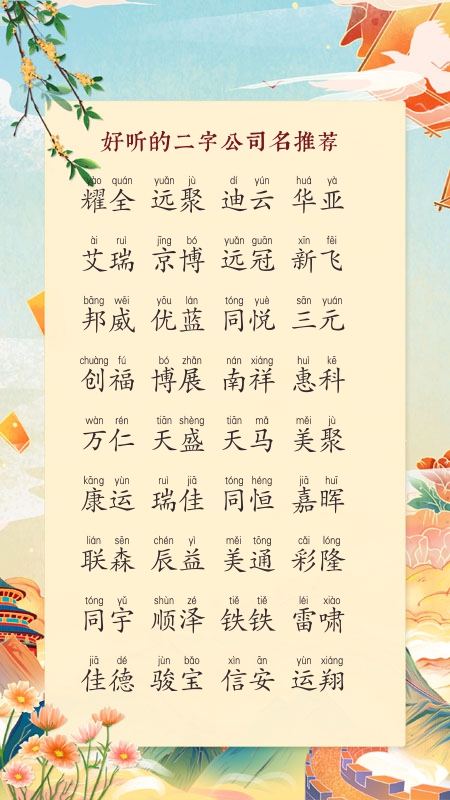 好听的二字公司名推荐
yào quán yuǎn jù dí yún huá yà
耀全 远聚 迪云 华亚
ài ruì jīng bó yuǎn guān xīn fēi
艾瑞 京博 远冠 新飞
bāng wēi yōu lán tóng yuè sān yuán
邦威 优蓝 同悦 三元
chuàng fú bó zhǎn nán xiáng huì kē
创福 博展 南祥 惠科
wàn rén tiān shèng tiān mǎ měi jù
万仁 天盛 天马 美聚
kāng yùn ruì jiā tóng héng jiā huī
康运 瑞佳 同恒 嘉晖
lián sēn chén yì měi tōng cǎi lóng
联森 辰益 美通 彩隆
tóng yǔ shùn zé tiě tiě léi xiào
同宇 顺泽 铁铁 雷啸
jiā dé jùn bǎo xìn ān yùn xiáng
佳德 骏宝 信安 运翔